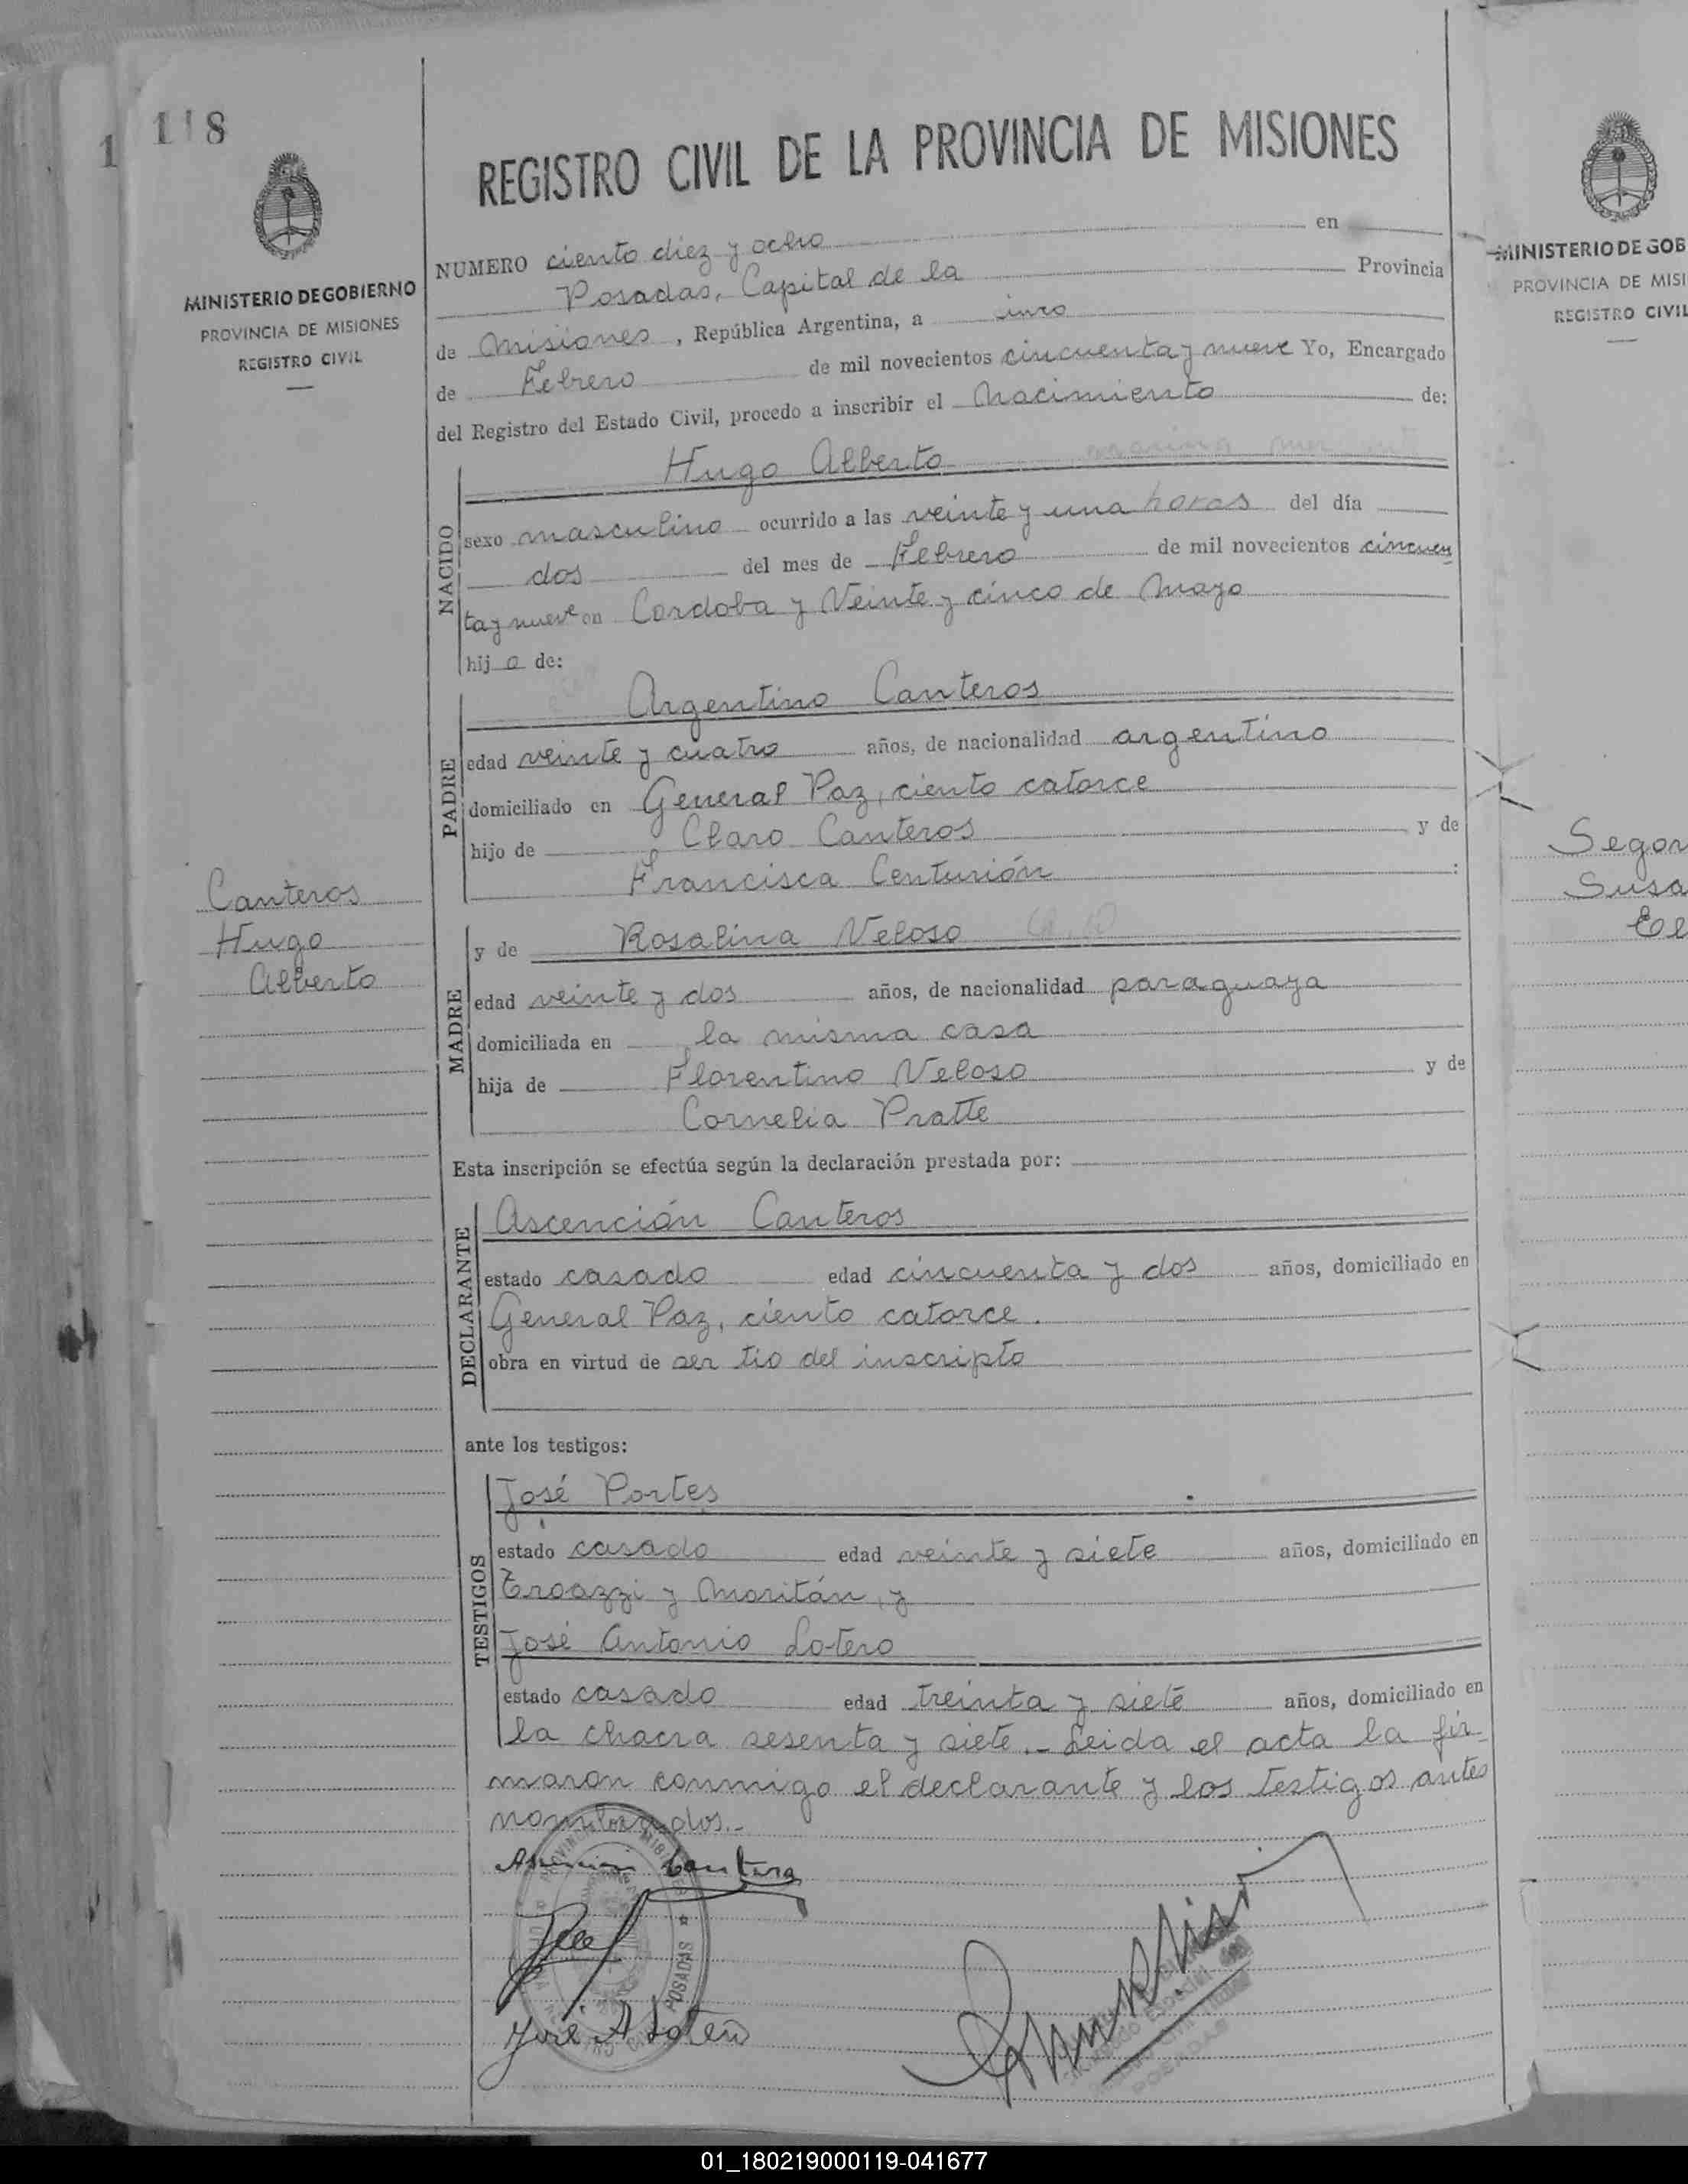 118
1
MINISTERIO DE GOBIERNO
PROVINCIA DE MISIONES
REGISTRO CIVIL
Canteros
Hugo
Alberto
REGISTRO CIVIL DE LA PROVINCIA DE MISIONES
NUMERO ciento diez y ocho en
Posadas, Capital de la Provincia
de Misiones, República Argentina, a cinco
de Febrero de mil novecientos cincuenta y nueve Yo, Encargado
del Registro del Estado Civil, procedo a inscribir el Nacimiento de:
NACIDO
Hugo Alberto
sexo masculino ocurrido a las veinte y una horas del día
dos del mes de Febrero de mil novecientos cincuen
ta y nueve en Cordoba y Veinte y cinco de Mayo
hijo de:
PADRE
Argentino Canteros
edad veinte y cuatro años, de nacionalidad argentino
domiciliado en General Paz, ciento catorce
hijo de Claro Canteros y de
Francisca Centurión :
MADRE
y de Rosalina Veloso
edad veinte y dos años, de nacionalidad paraguaya
domiciliada en la misma casa
hija de Florentino Veloso y de
Cornelia Pratte
Esta inscripción se efectúa según la declaración prestada por:
DECLARANTE
Ascención Canteros
estado casado edad cincuenta y dos años, domiciliado en
General Paz, ciento catorce.
obra en virtud de ser tio del inscripto
ante los testigos:
TESTIGOS
José Portes
estado casado edad veinte y siete años, domiciliado en
y Moritán, y
José Antonio Lotero
estado casado edad treinta y siete años, domiciliado en
la chacra sesenta y siete.- Leida el acta la fir-
maron conmigo el declarante y los testigos antes
nombrados.-
José A Lotero
POSADAS
MINISTERIO DE GOB
PROVINCIA DE MISI
REGISTRO CIVIL
Segov
Susa
El
01_180219000119-041677